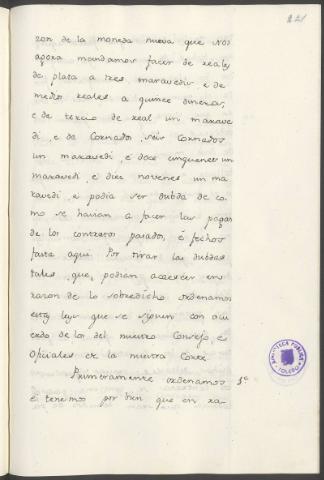 221
zon de la moneda nueva que Nos
agora mandamos facer de reales
de plata a tres maravedis, e de
medios reales a quince dineros,
e de tercio de real un marave
di, e de Cornados, seis Cornados
un maravedi, e doce cinquenes un
maravedi, e diez novenes un ma
ravedi, e podia ser dubda de co-
mo se havian a facer las pagas
de los contratos pasados, é fechos
fasta aqui. Por tirar las dubdas
tales, que podrian acaescer en
razon de lo sobredicho ordenamos
estas leys que se siguen con acu
erdo de los del nuestro Consejo, é
oficiales de la nuestra Corte
Primeramente ordenamos 1º
é tenemos por bien que en ra-
BIBLIOTECA PUBLICA
TOLEDO